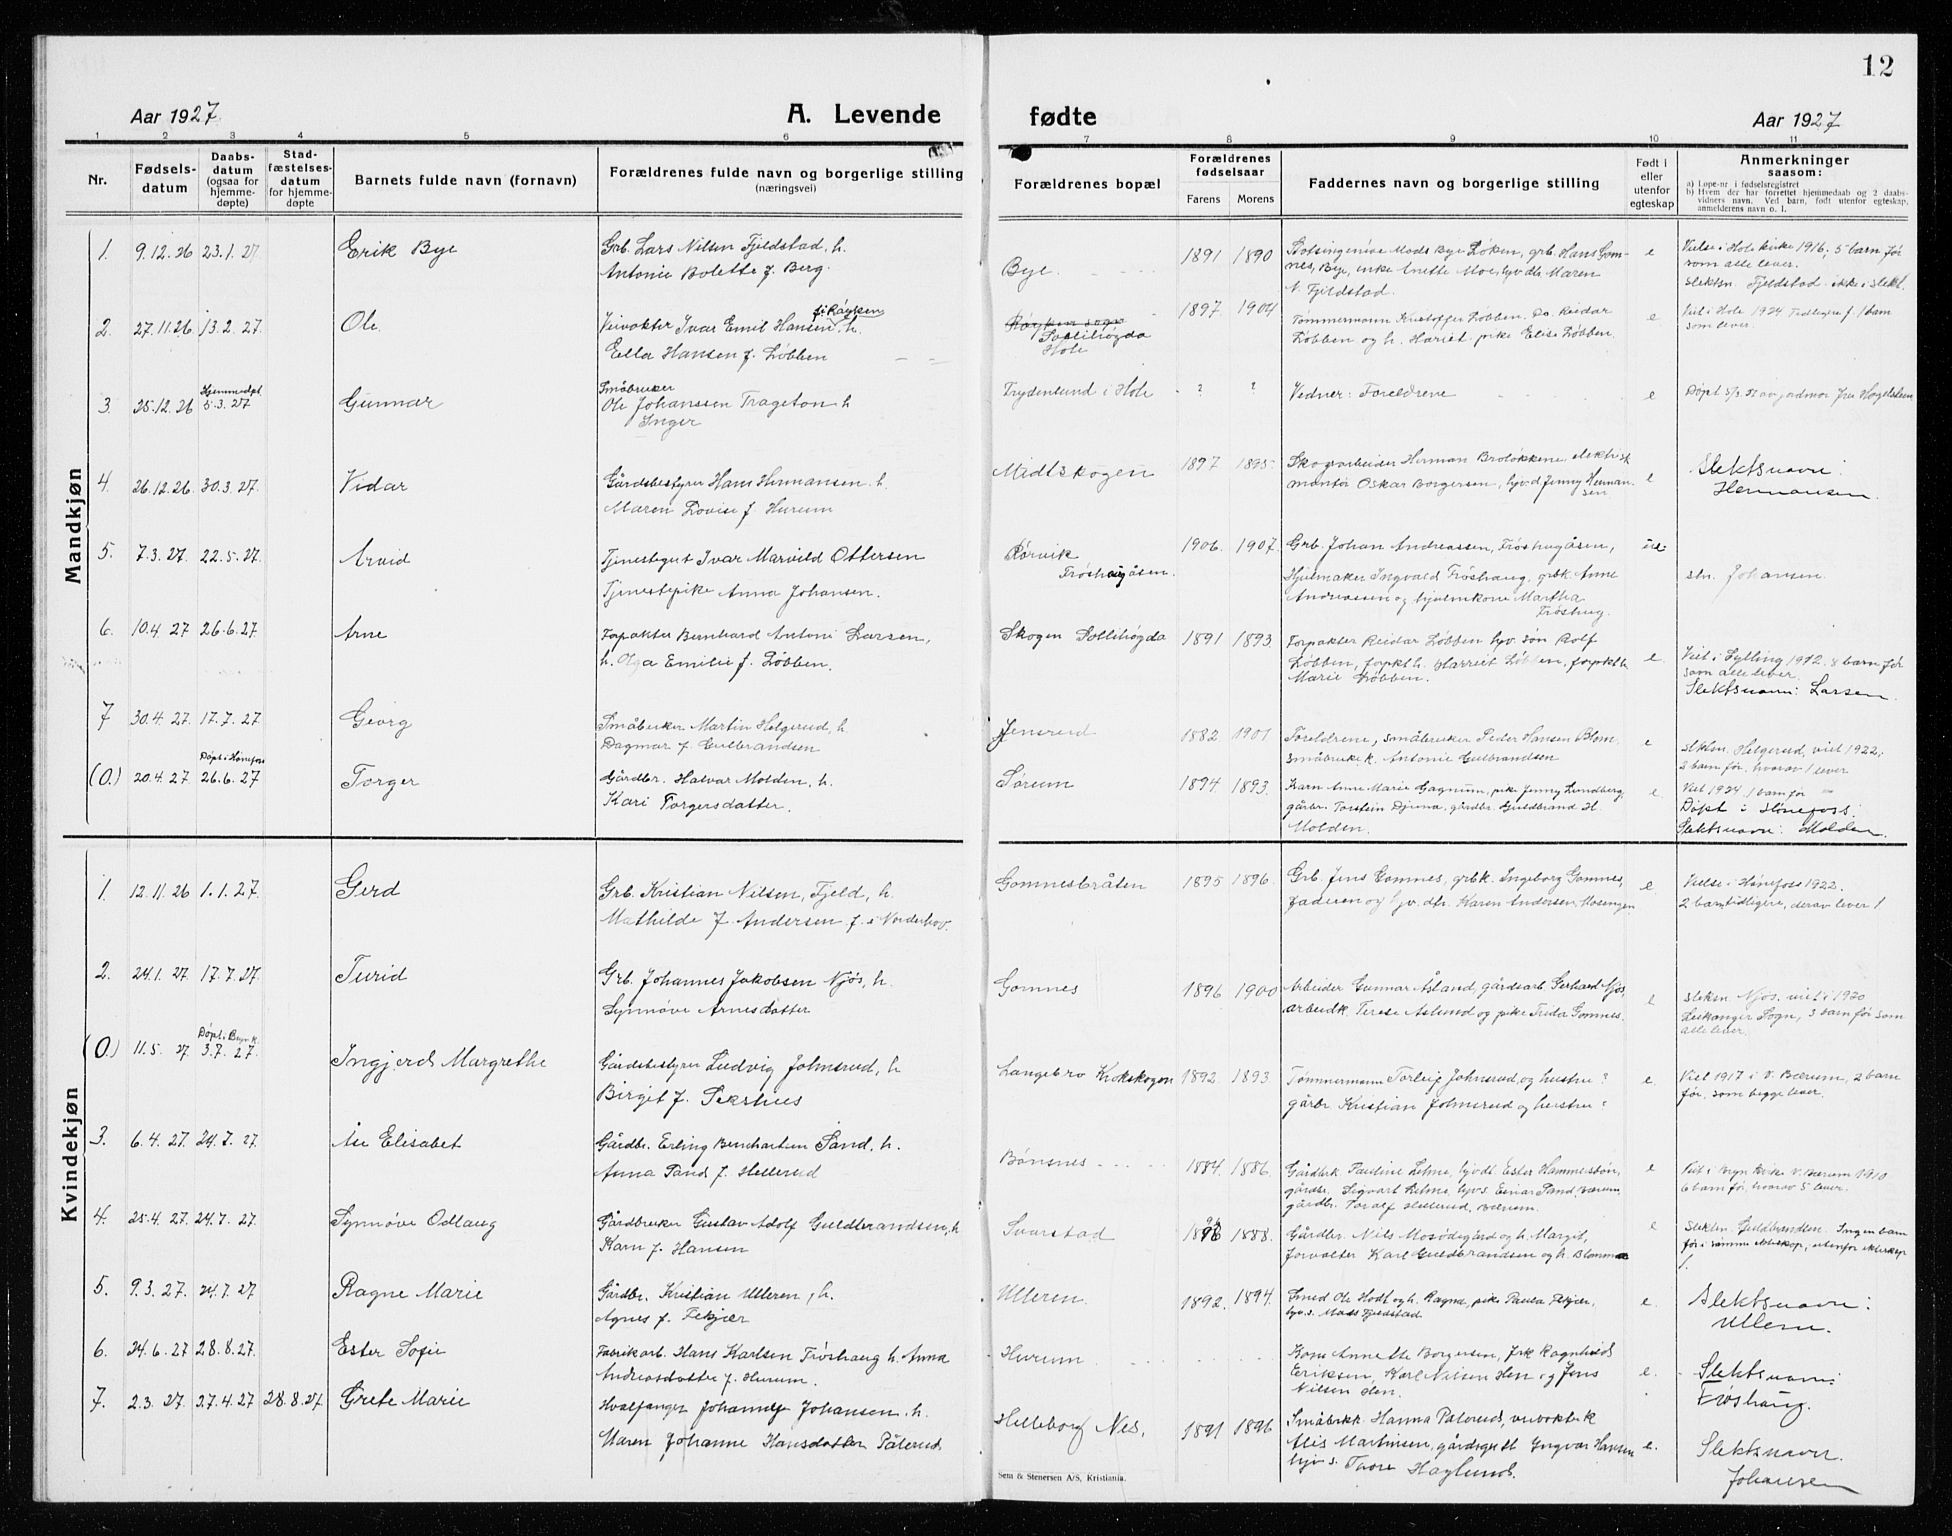 12
Aar 1927
A. Levende
fødte
Aar 1927
1 2 3 4 5 6 7 8 9 10 11
Nr.
Fødsels-
datum
Daabs-
datum
(ogsaa for
hjemme-
døpte)
Stad-
fæstelses-
datum
for hjemme-
døpte
Barnets fulde navn (fornavn)
Forældrenes fulde navn og borgerlige stilling
(næringsvei)
Forældrenes bopæl
Forældrenes
fødselsaar
Farens Morens
Faddernes navn og borgerlige stilling
Født i
eller
utenfor
egteskap
Anmerkninger
saasom:
a) Løpe-nr i fødselsregistret
b) Hvem der har forrettet hjemmedaab og 2 daabs-
vidners navn. Ved barn, født utenfor egteskap,
anmelderens navn o. l.
Mandkjøn
1. 9.12.26 23.1.27 Erik Bye
Grb. Lars Nilsen Fjeldstad, h.
Antonie Bolette f. Berg.
Bye.
1891 1890
Mads Bye Løken, grb. Hans Gom-
nes, Bye, enke Anette Moe, hjv. dtr. Maren
N. Fjeldstad.
e
Vielse i Hole kirke 1916; 5 barn før
som alle lever.
Slektsn. Fjeldstad ikke i slekt.
2. 27.11.26 13.2.27. Ole
Veivokter Ivar Emil Hansen, h.
fr Røyken
Ella Hansen f. Løbben
Røyken sogn
Sollihøgda
Hole
1897. 1904
Tømmermann Kristoffer Løbben, Do Reidar
Løbben og h. Hariet, pike Elise Løbben.
e
Viet i Hole 1924 Tidligere f. 1 barn
som lever
3. 25.12.26 Hjemmedpt
5.3.27 Gunnar
Småbruker
Ole Johanssen Trageton h
Inger
Frydenlund i Hole
? ?
Vedner: Foreldrene
e
Døpt 5/3 27 av jordmor fru
4. 26.12.26 30.3.27. Vidar
Gårdsbestyrer Hans Hermansen. h.
Maren Lovise f. Hurum
Midtskogen
1897 1895
Skogsarbeider Herman Brolokkene, elektrisk
montør Oskar Borgersen, hjv.d Jenny Herman-
sen
e
Slektsnavn:
Hermansen.
5. 7.3.27. 22.5.27. Arvid
Tjenestegut Ivar Marvild Ottersen
Tjenestepike Anna Johansen.
Rørvik
Frøshaugåsen.
1906. 1907.
Grb. Johan Andreassen, Frøshugåsen,
Hjulmaker Ingvald Frøshaug, grbk. Anne
Andreassen og hjulmkone Martha
Frøshug.
u e
sln. Johansen.
6. 10.4.27 26.6.27 Arne
Forpakter Bernhard Antoni Larsen,
h. Olga Emilie f. Løbben.
Skogen Sollihøgda
1891 1893.
Forpakter Reidar Løbben hjv. søn Rolf
Løbben, forpkt h. Harriet Løbben, forpkt h.
Marie Løbben.
e.
Viet i Sylling 1912. 8 barn før
som alle lever.
Slektsnavn: Larsen.
7 30.4.27 17.7.27 Georg
Småbruker Martin Helgerud, h.
Dagmar f. Gulbrandsen
Jensrud
1882 1901
Foreldrene, småbruker Peder Hansen Blom-
småbruke k. Antonie Gulbrandsen
e
slktn. Helgerud, viet 1922,
2 barn før, hvorav 1 lever
(0.) 20.4.27 Døpt i Hønefoss
26.6.27 Torger
Gårdbr. Halvar Molden, h.
Kari Torgersdatter.
Sørum
1894 1893.
Barn Anne Marie Gagnum, pike Jenny Lundberg,
gårbr. Torstein Djuna, gårdbr. Guldbrand H.
Molden.
e.
Viet 1924 1 barn før
Døpt i Hønefoss.
Slektsnavn: Molden.
Kvindekjøn
1. 12.11.26 1.1.27. Gerd
Grb. Kristian Nilsen, Fjeld, h.
Mathilde f. Andersen f. i Norderhov.
Gomnesbråten
1895 1896.
Grb. Jens Gomnes, grbk. Ingeborg Gomnes,
faderen og hjv. dtr. Karen Andersen, Mosengen
e.
Vielse i Hønefoss 1922.
2 barn tidligere, derav lever 1
2. 24.1.27 17.7.27. Turid
Grb. Johannes Jakobsen Njøs, h.
Synnøve Arnesdatter
Gomnes
1896 1900
Arbeider Gunnar Åsland, gårdsarb. Gerhard Njøs,
arbeidk. Terese Åslund og pike Frida Gomnes.
e
slektsn. Njøs. viet i 1920
Leikanger Sogn, 3 barn før som
alle lever.
(0.) 11.5.27 Døpt i Bryn k.
3.7.27. Ingjerd Margrethe
Gårdsbestyrer Ludvig Johnsrud, h
Birgit f.
Langebro Krokskogen
1892. 1893.
Tømmermann Torleif Johnsrud, og hustru?
gårbr. Kristian Johnsrud og hustru?
e.
Viet 1917 i V. Bærum, 2 barn
før, som begge lever.
3. 6.4.27. 24.7.27. Åse Elisabet
Gårdbr. Erling Sand, h.
Anna Sand f. Hellerud
Bønsnes
1884. 1886.
Gårdbrk. Pauline Lehne, hjv dt. Ester Hammersbøn,
gårdbr. Sigvart Lehne, hjv.s. Einar Sand, Bærum,
gårdbr. Toralf Hellerud, Bærum.
e
Viet i Bryn kirke V. Bærum 1910
6 barn før, hvorav 5 lever.
4. 25.4.27. 24.7.27. Synnøve Odlaug
Gårdbruker Gustav Adolf Guldbrandsen, h
Karn f. Hansen
Svarstad
1896 1888.
Gårdbr. Nils Mosødegård og h. Margit,
forvalter Karl Guldbrandsen og h. Blomma
e
Slektsn. Guldbrandsen. Ingen barn
før i samme ekteskap, utenfor ekteskap
1
5. 9.3.27. 24.7.27 Ragne Marie
Gårdbr. Kristian Ulleren, h.
Agnes f. Fekjær
Ulleren.
1892. 1894.
Smed Ole Hodt og h. Ragna, pike Paula Fekjær,
hjv.s. Mads Fjeldstad.
e.
Slektsnavn:
Ullern.
6. 24.6.27 28.8.27. Ester Sofie
Fabrikarb. Hans Karlsen Frøshaug h. Anna
Andreasdatter f. Hurum.
Hurum
Kone Annette Borgersen, frk Ragnhild
Eriksen, Karl Nilsen Hen og Jens
Nilsen Hen.
e.
Slektsnavn:
Frøshaug.
7. 2.3.27. 27.4.27 28.8.27. Grete Marie
Hvalfanger Johannes Johansen. h.
Maren Johanne Hansdatter Pålerud.
Helleborg Nes.
1891 1896
Småbrkk. Hanna Palerud, veivokter k
Alis Martinsen, gårdsgutt Yngvar Hansen
hjv s. Tvore Haglund.
e.
Slektsnavn.
Johansen
Sem & Stenersen A/S, Kristiania.